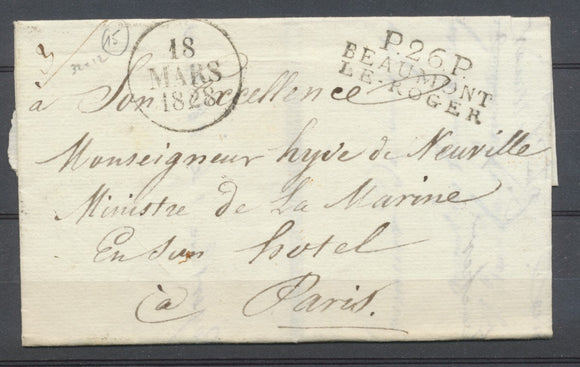 15
18
MARS
1828
P.26.P.
BEAUMONT
LE-ROGER
à Son Excellence
Monseigneur hyde de Neuville
Ministre de La Marine
En Son hotel
à Paris.